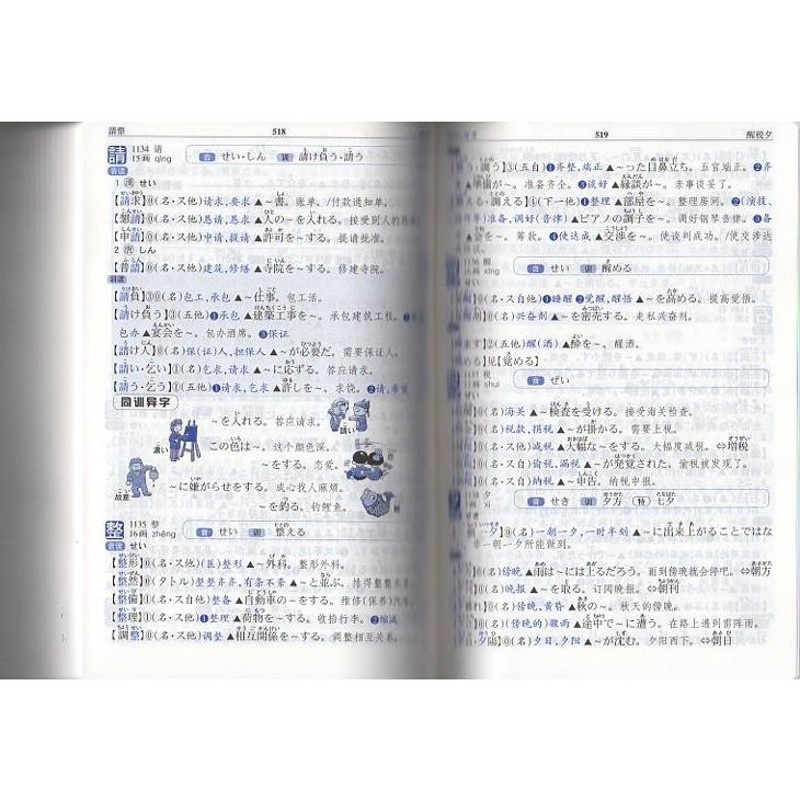 請整 518
請 1134 请 15画 qǐng 音 せい・しん 訓 請け負う・請う
音读
1 漢 せい
【請求】⓪(名・ス他)请求，要求▲～書。账单。/付款通知单。
【懇請】⓪(名・ス他)恳请，恩求▲人の～を入れる。接受别人的恳
【申請】⓪(名・ス他)申请，提请▲許可を～する。提请批准。
2 しん
【普請】⓪(名・ス他)建筑，修缮▲寺院を～する。修建寺院。
训读
【請負】③⓪(名)包工，承包▲～仕事。包工活。
【請け負う】③(五他)❶承包▲建築工事を～。承包建筑工程。
包办▲宴会を～。包办酒席。❸保证
【請け人】⓪(名)保(证)人，担保人▲～が必要だ。需要保证人。
【請い・乞い】①(名)乞求，请求▲～に応ずる。答应请求。
【請う・乞う】①(五他)❶请求，乞求▲許しを～。求饶。❷请，希望
同训异字
～を入れる。答应请求。
請い
濃い
この色は～。这个颜色深。
～をする。恋爱。
故意
～に嫌がらせをする。成心找人麻烦。
～を釣る。钓鲤鱼。
整 1135 整 16画 zhěng 音 せい 訓 整える
音读 せい
【整形】⓪(名・ス他)(医)整形▲～外科。整形外科。
【整然】⓪(タトル)整整齐齐，有条不紊▲～と並ぶ。排得整整齐齐
【整備】①(名・ス自他)整备▲自動車の～をする。维修(保养)汽车
【整理】①(名・ス他)❶整理▲荷物を～する。收拾行李。❷缩减
【調整】⓪(名・ス他)调整▲相互関係を～する。调整相互关系。
519 醒税夕
調う】③(五自)❶齐整，端正▲～った目鼻立ち。五官端正。❷齐
準備が～。准备齐全。❸谈好▲縁談が～。亲事谈妥了。
調える】③(下一他)❶整理▲部屋を～。整理房间。❷(演技、
准备，调好(音律)▲ピアノの調子を～。调好钢琴音律。❸备
を～。筹款。❹使达成▲交渉を～。使谈判成功。/使交涉达
醒 xǐng 音 せい 訓 醒める
⓪(名・ス自他)❶睡醒❷觉醒，醒悟▲～を高める。提高觉悟。
⓪(名)兴奋剂▲～を密売する。走私兴奋剂。
②(五他)醒(酒)▲酔を～。醒酒。
める]见[覚める]
税 shuì 音 ぜい
⓪(名)海关▲～検査を受ける。接受海关检查。
⓪(名)税款，捐税▲～が掛かる。需要上税。
⓪(名・ス他)减税▲大幅な～をする。大幅度减税。⇔増税
⓪(名・ス自)偷税，漏税▲～が発覚された。偷税被发现了。
⓪(名・ス自)纳税▲～申告。纳税申报。
夕 xī 音 せき 訓 夕方 特 七夕
一夕】⓪(名)一朝一夕，一时半刻▲～に出来上がることではな
非一朝一夕所能做到。
⓪(名)傍晚▲雨は～には上るだろう。雨到傍晚就会停吧。⇔朝方
⓪(名)晚报▲～を取る。订阅晚报。⇔朝刊
⓪(名)傍晚，黄昏▲秋の～。秋天的傍晚。
⓪(名)(傍晚的)骤雨▲途中で～に遭う。在路上遇到雷阵雨。
⓪(名)夕日，夕阳▲～が沈む。夕阳西下。⇔朝日